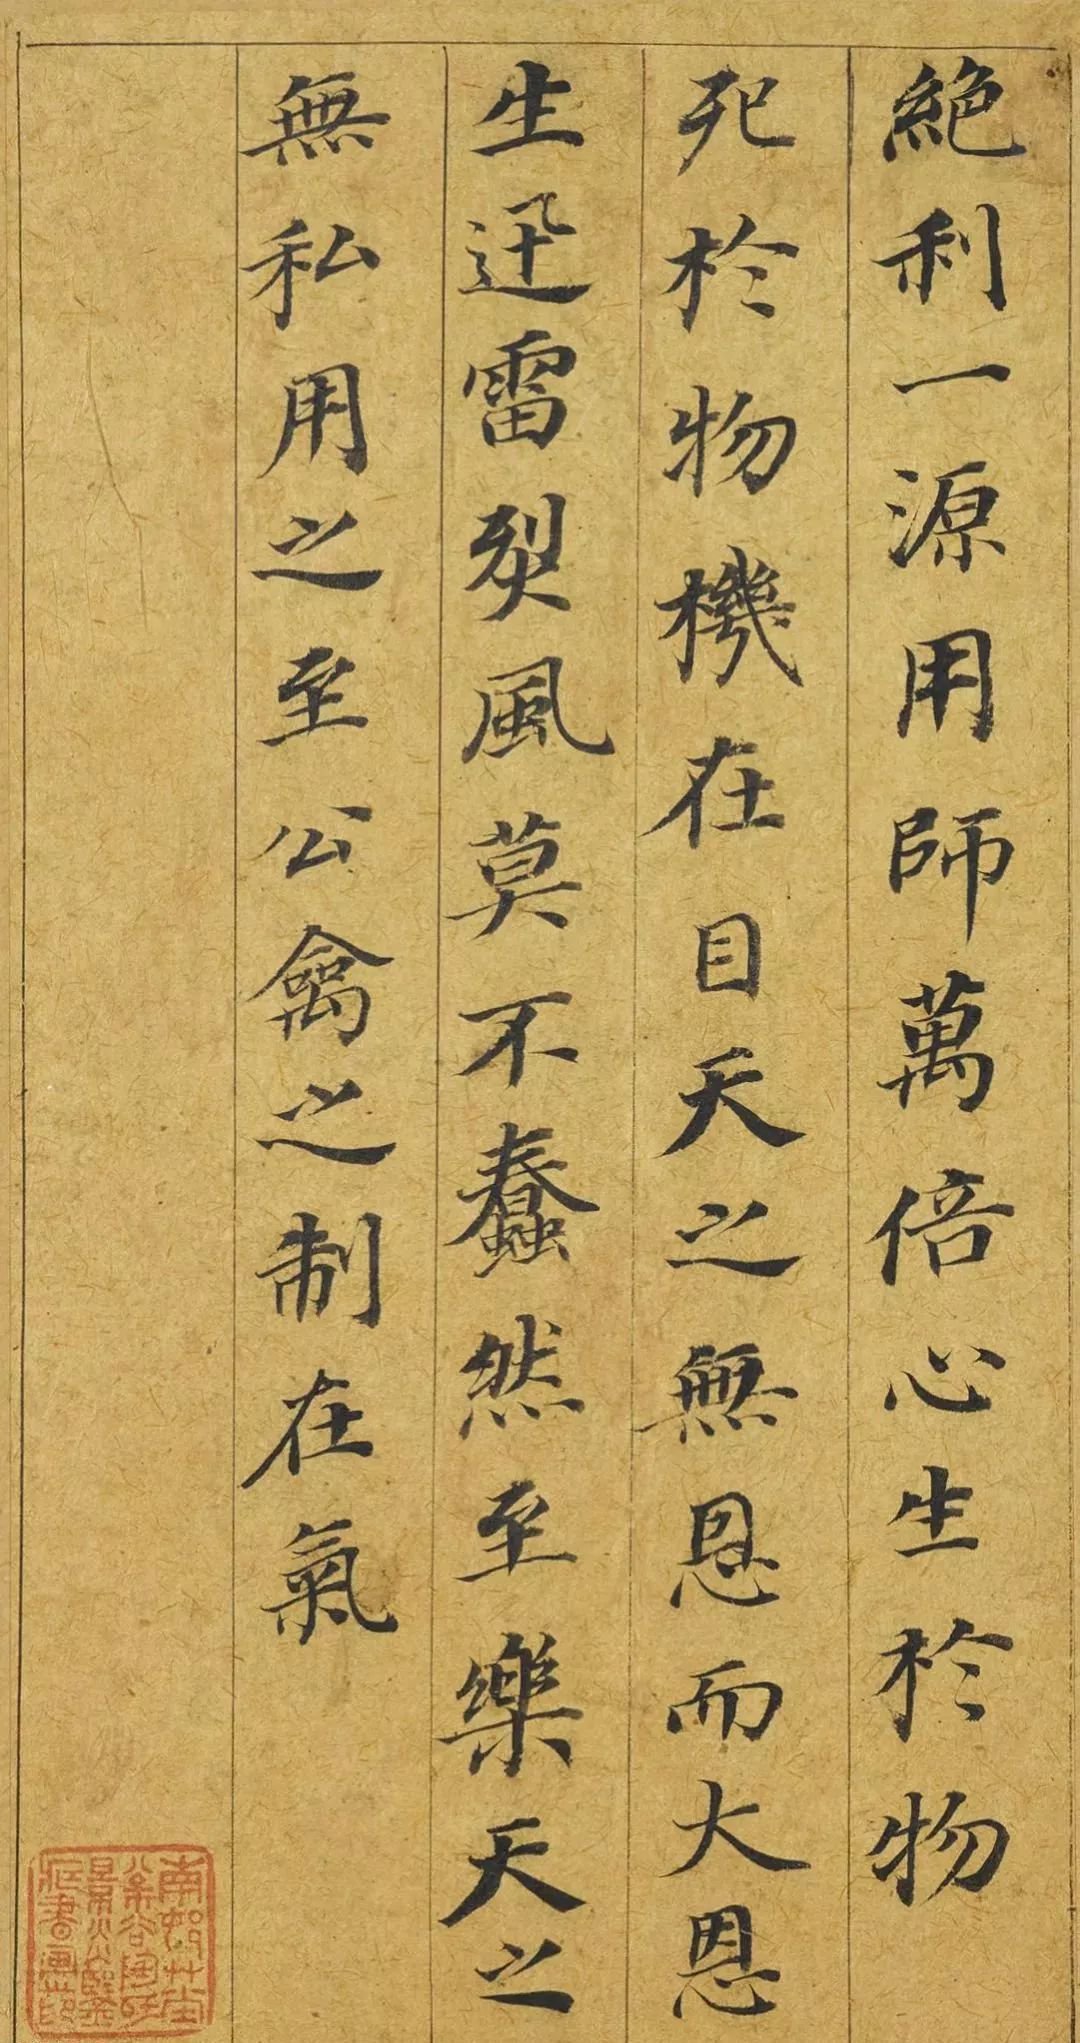 絶利一源用師萬倍心生於物
死於物機在目天之無恩而大恩
生迅雷烈風莫不蠢然至樂天之
無私用之至公禽之制在氣